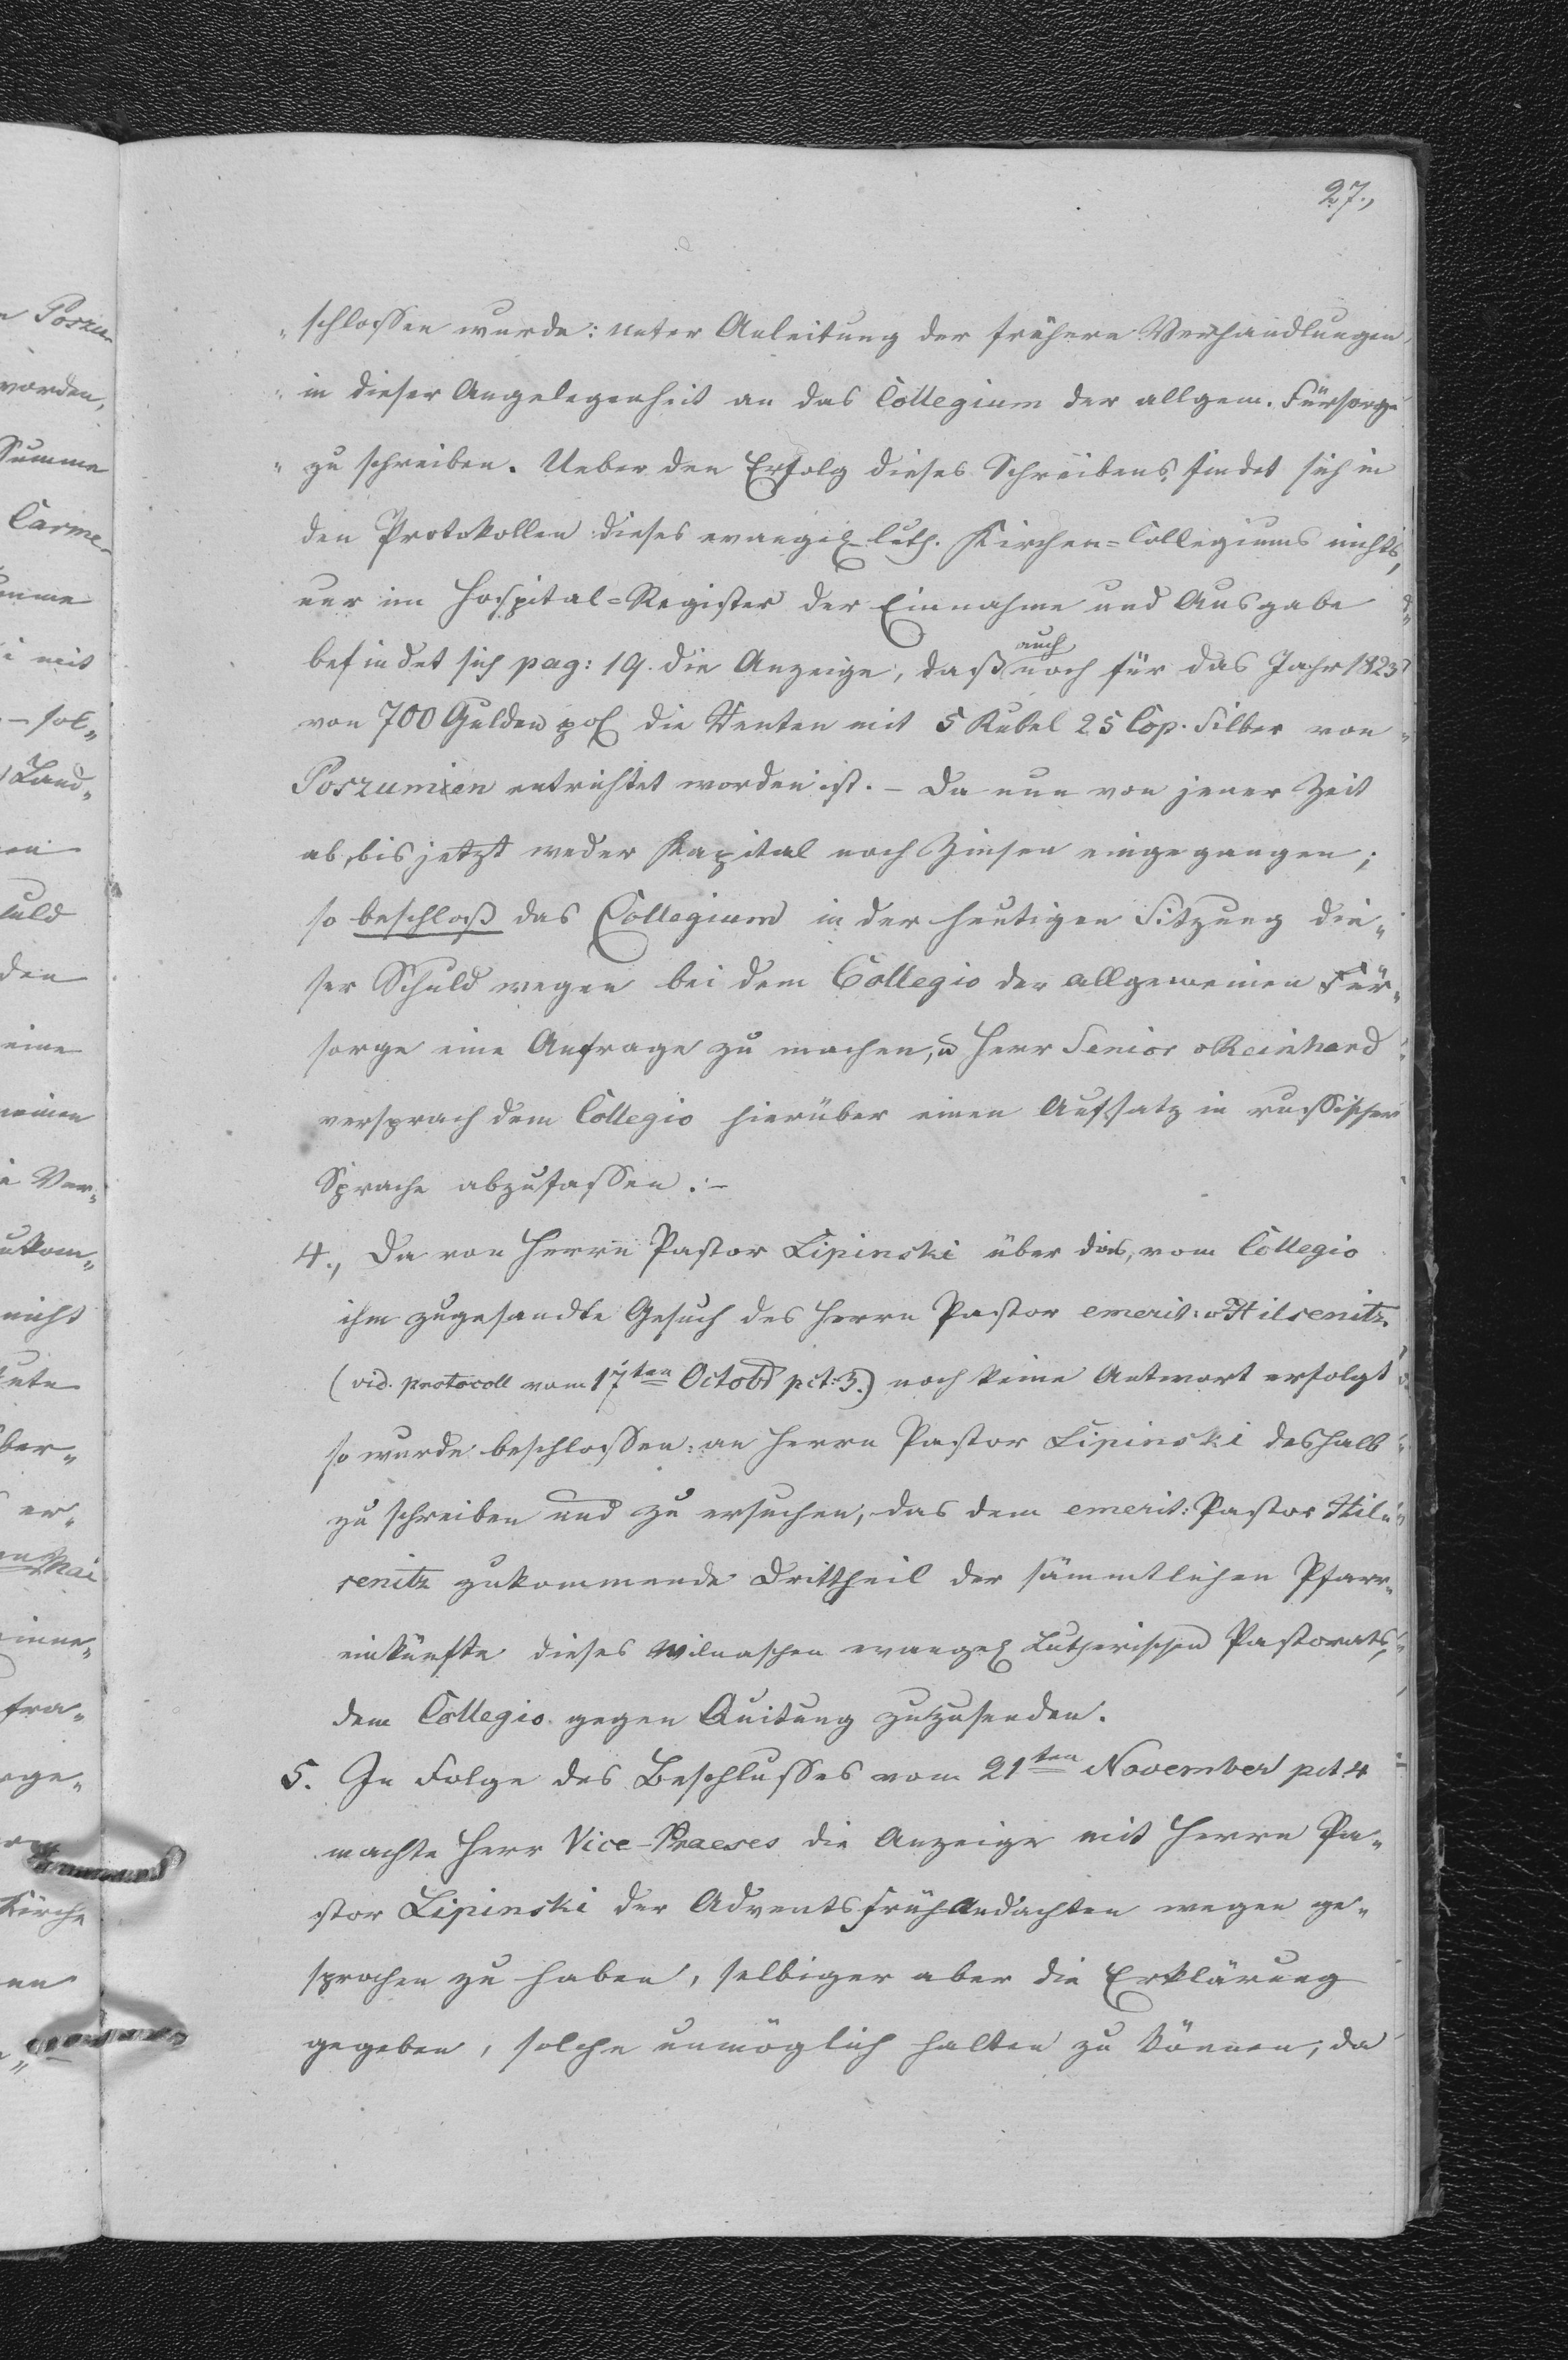 27.,
„ schlossen wurde: unter Anleitung der frühern Verhandlungen
„ in dieser Angelegenheit an das Collegium der allgem. Fürsorge
„ zu schreiben. Ueber den Erfolg dieses Schreibens, findet sich in
den Protokollen dieses evangel. luth. Kirchen=Collegiums nichts,
nur im Hospital=Register der Einnahme und Ausgabe
auch
befindet sich pag: 19. die Anzeige, daß noch für das Jahr 1823
von 700 Gulden pol. die Renten mit 5 Rubel 25 Cop. Silber von
Poszumien entrichtet worden ist. – Da nun von jener Zeit
ab, bis jetzt weder Kapital noch Zinsen eingegangen;
so beschloß das Collegium in der heutigen Sitzung die„
ser Schuld wegen bei dem Collegio der allgemeinen Für„
sorge eine Anfrage zu machen, u Herr Senior v Reinhard
versprach dem Collegio hierüber einen Aufsatz in russischer
Sprache abzufassen. –
4., Da von Herrn Pastor Lipinski über das, vom Collegio
ihm zugesandte Gesuch des Herrn Pastor emerit: v Hilsenitz.
(vid. protocoll vom 17ten Octobr pct: 3.) noch keine Antwort erfolgt
so wurde beschlossen: an Herrn Pastor Lipinski deshalb
zu schreiben und zu ersuchen, das dem emerit: Pastor Hil„
senitz zukommende Drittheil der sämmtlichen Pfarr„
einkünfte dieses wilnaschen evangel. Lutherischen Pastorats,
dem Collegio gegen Quitung zuzusenden.
5. In Folge des Beschlusses vom 21ten November pct. 4
machte Herr Vice-Praeses die Anzeige mit Herrn Pa„
stor Lipinski der Adventsfrühandachten wegen ge„
sprochen zu haben, selbiger aber die Erklärung
gegeben, solche unmöglich halten zu können, da